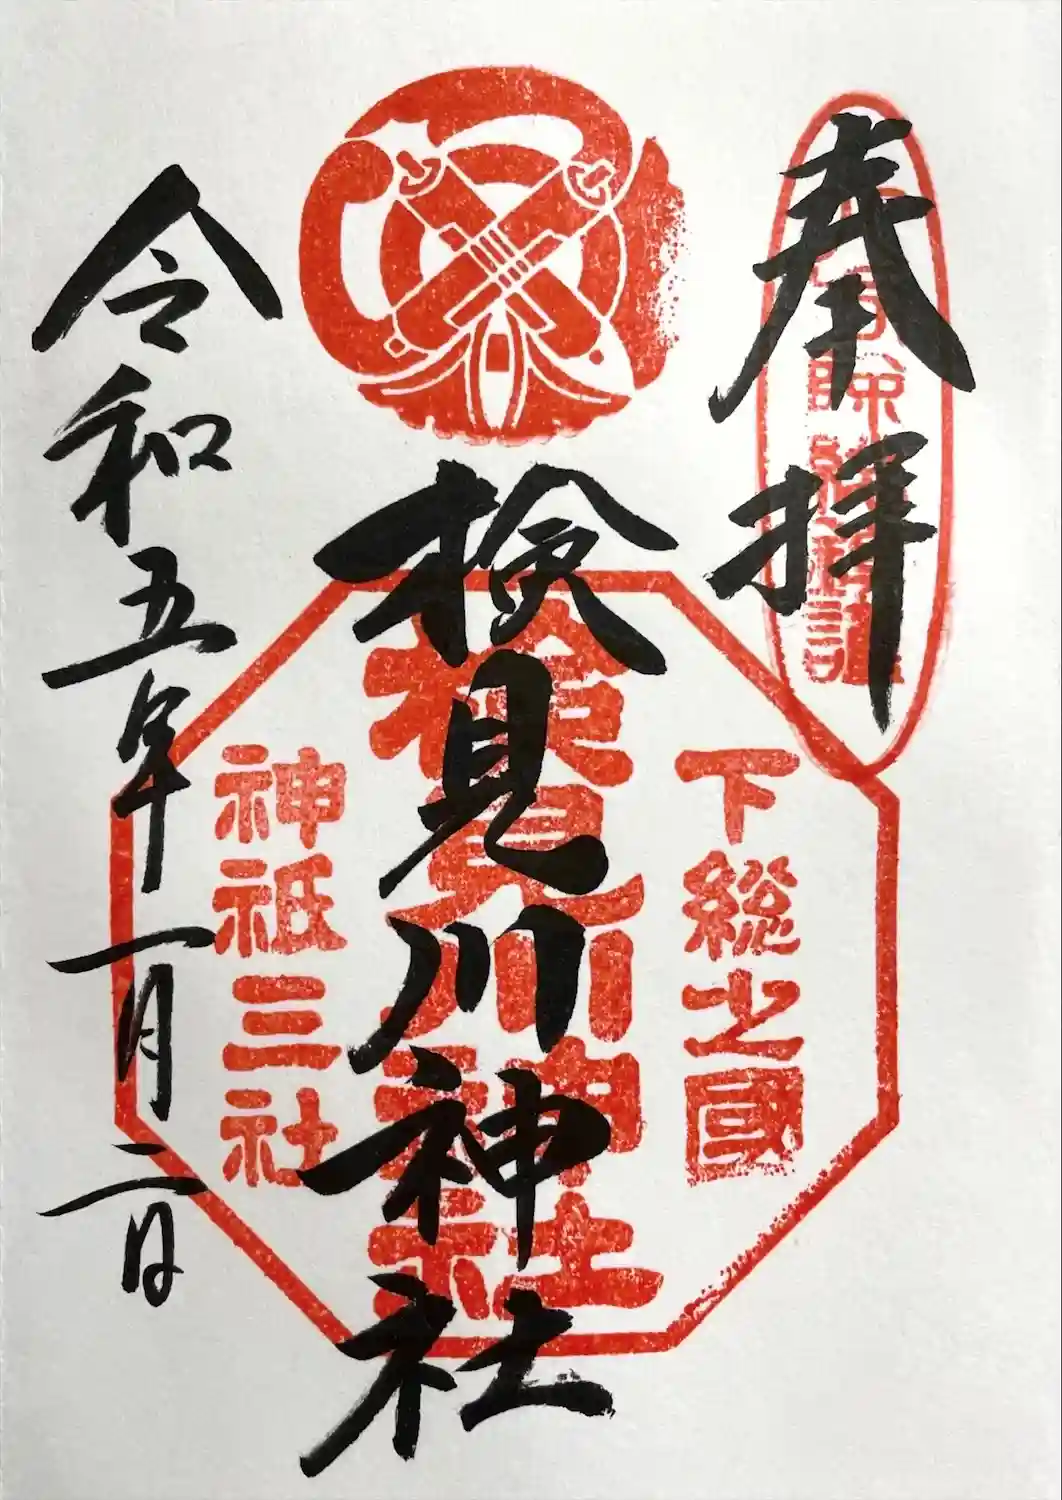 奉拝
下総之國
検見川神社
検見川神社
神祇三社
令和五年一月二日